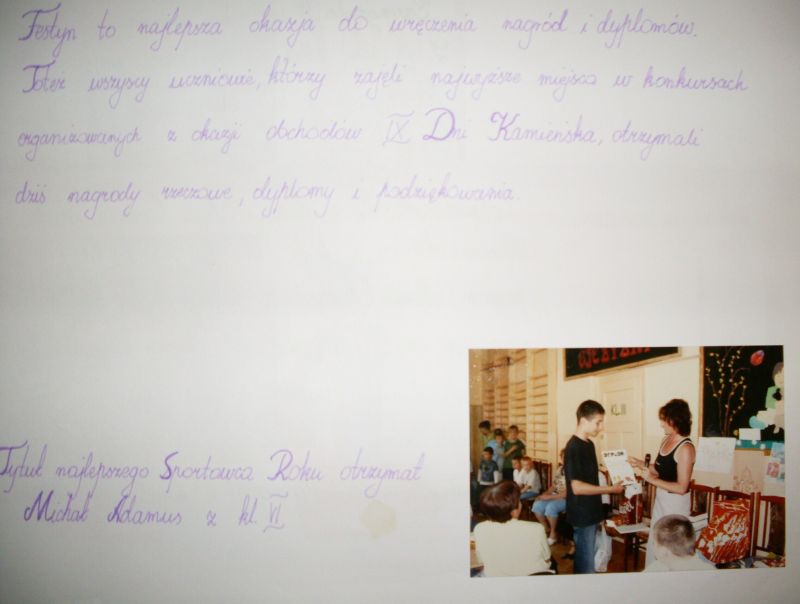 Festyn to najlepsza okazja do wręczenia nagród i dyplomów.
Toteż wszyscy uczniowie, którzy zajęli najwyższe miejsca w konkursach
organizowanych z okazji obchodów IX Dni Kamieńska, otrzymali
dziś nagrody rzeczowe, dyplomy i podziękowania.
KL. III
DYPLOM
Tytuł najlepszego Sportowca Roku otrzymał
Michał Adamus z kl. VI